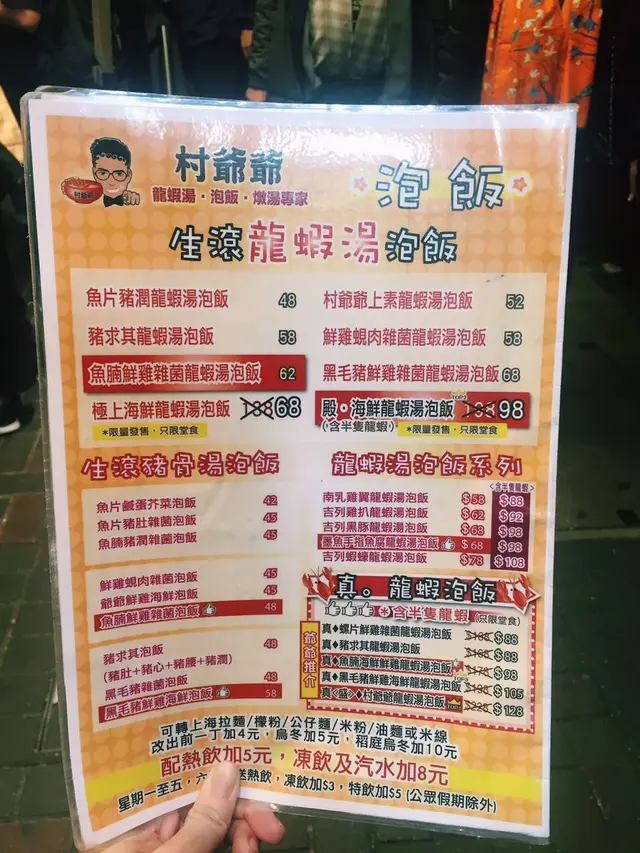 村爺爺
村爺爺
龍蝦湯·泡飯·燉湯專家
泡飯
生滾龍蝦湯泡飯
魚片豬潤龍蝦湯泡飯 48
豬求其龍蝦湯泡飯 58
魚腩鮮雞雜菌龍蝦湯泡飯 62
極上海鮮龍蝦湯泡飯 68
*限量發售,只限堂食
村爺爺上素龍蝦湯泡飯 52
鮮雞蜆肉雜菌龍蝦湯泡飯 58
黑毛豬鮮雞雜菌龍蝦湯泡飯 68
殿·海鮮龍蝦湯泡飯 98
(含半隻龍蝦) *限量發售,只限堂食
生滾豬骨湯泡飯
魚片鹹蛋芥菜泡飯 42
魚片豬肚雜菌泡飯 45
魚腩豬潤雜菌泡飯 45
鮮雞蜆肉雜菌泡飯 45
爺爺鮮雞海鮮泡飯 45
魚腩鮮雞雜菌泡飯 48
豬求其泡飯 48
(豬肚+豬心+豬腰+豬潤)
黑毛豬雜菌泡飯 48
黑毛豬鮮雞海鮮泡飯 58
龍蝦湯泡飯系列
<含半隻龍蝦>
南乳雞翼龍蝦湯泡飯 $58 $88
吉列雞扒龍蝦湯泡飯 $62 $92
吉列黑豚龍蝦湯泡飯 $68 $98
墨魚手指魚腐龍蝦湯泡飯 $68 $98
吉列蝦蠔龍蝦湯泡飯 $78 $108
真。龍蝦泡飯
*含半隻龍蝦 (只限堂食)
爺爺推介
真♦螺片鮮雞雜菌龍蝦湯泡飯 $88
真♦豬求其龍蝦湯泡飯 $88
真♦魚腩海鮮雞龍蝦湯泡飯 $98
真♦黑毛豬鮮雞海鮮龍蝦湯泡飯 $105
真<盛>♦村爺爺龍蝦湯泡飯 $128
可轉上海拉麵/檬粉/公仔麵/米粉/油麵或米線
改出前一丁加4元,烏冬加5元,稻庭烏冬加10元
配熱飲加5元,凍飲及汽水加8元
星期一至五,六 送熱飲,凍飲加$3,特飲加$5 (公眾假期除外)